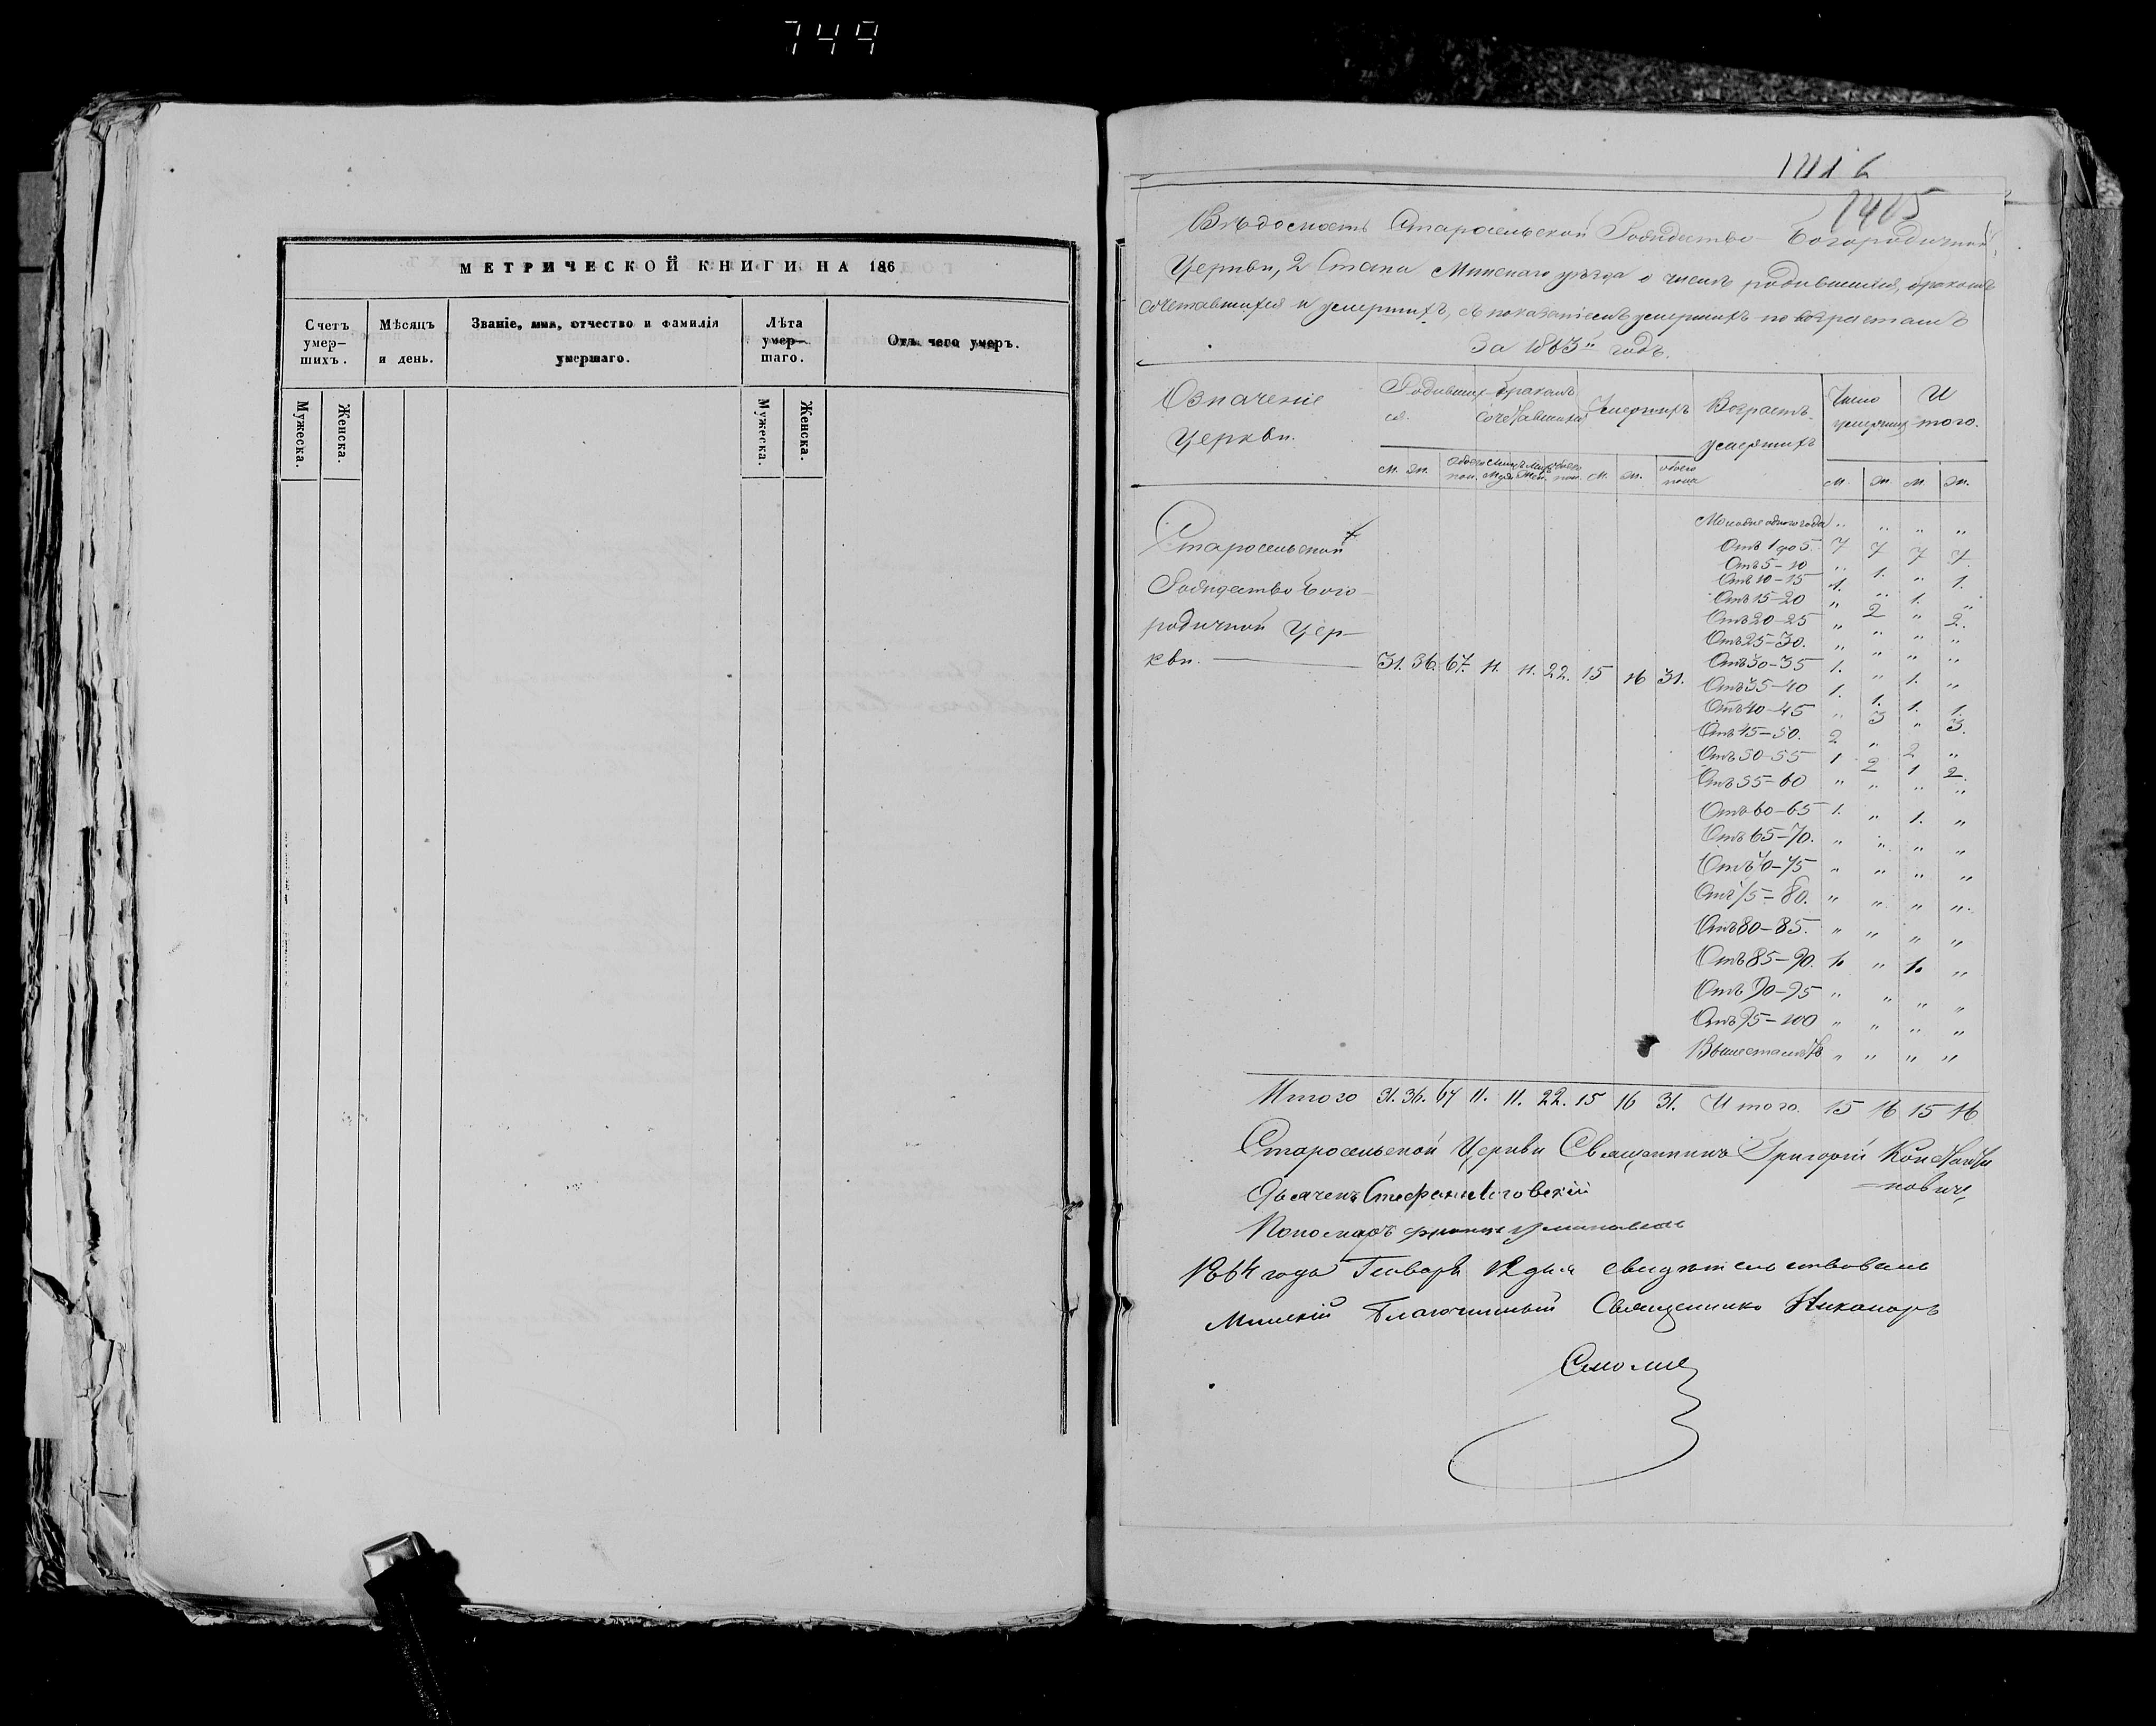 749
МЕТРИЧЕСКОЙ КНИГИ НА 186
Счетъ умер-шихъ.
Мѣсяцъ и день.
Званіе, имя, отчество и фамилія умершаго.
Лѣта умер-шаго.
Отъ чего умеръ.
Мужеска.
Женска.
Мужеска.
Женска.
1405
Вѣдомость Старосельской Рождество-Богородичной
Церкви, 2 Стана Минскаго уѣзда о числѣ родившихся, бракомъ
сочетавшихся и умершихъ, съ показаніемъ умершихъ по возрастамъ
За 1863й годъ.
Означеніе Церкви.
Родивших-ся.
Бракомъ Сочетавшихся
Умершихъ
Возрастъ умершихъ
Число умершихъ
И того.
м. ж. обоего пол. м. ж. обоего пола м. ж. м. ж.
Моложе одного года " " " "
Старосельской
Отъ 1 до 5. 7 7 7 7.
Отъ 5-10 " 1. " 1.
Рождество Бого-
Отъ 10-15 1. " 1. "
Отъ 15-20 " 2 " 2.
родичной Цер-
Отъ 20-25 " " " "
Отъ 25-30. " " " "
кви. 31. 36. 67. 11. 11. 22. 15 16 31.
Отъ 30-35 1. " 1. "
Отъ 35-40 1. 1. 1. 1.
Отъ 40-45 " 3 " 3.
Отъ 45-50. 2 " 2 "
Отъ 50-55 1 2 1 2.
Отъ 55-60 " " " "
Отъ 60-65 1. " 1. "
Отъ 65-70. " " " "
Отъ 70-75 " " " "
Отъ 75-80. " " " "
Отъ 80-85. " " " "
Отъ 85-90. 1. " 1. "
Отъ 90-95 " " " "
Отъ 95-100 " " " "
Выше ста лѣтъ " " " "
Итого 31. 36. 67 11. 11. 22. 15 16 31. Итого. 15 16 15 16
Старосельской Церкви Священникъ Григорій Константи
-новичъ
Дьячекъ Стефанъ Логовскій
Пономарь
1864 года Генваря 12 дня свидѣтельствовалъ
Минскій Благочинный Священникъ Никаноръ
Смоличъ